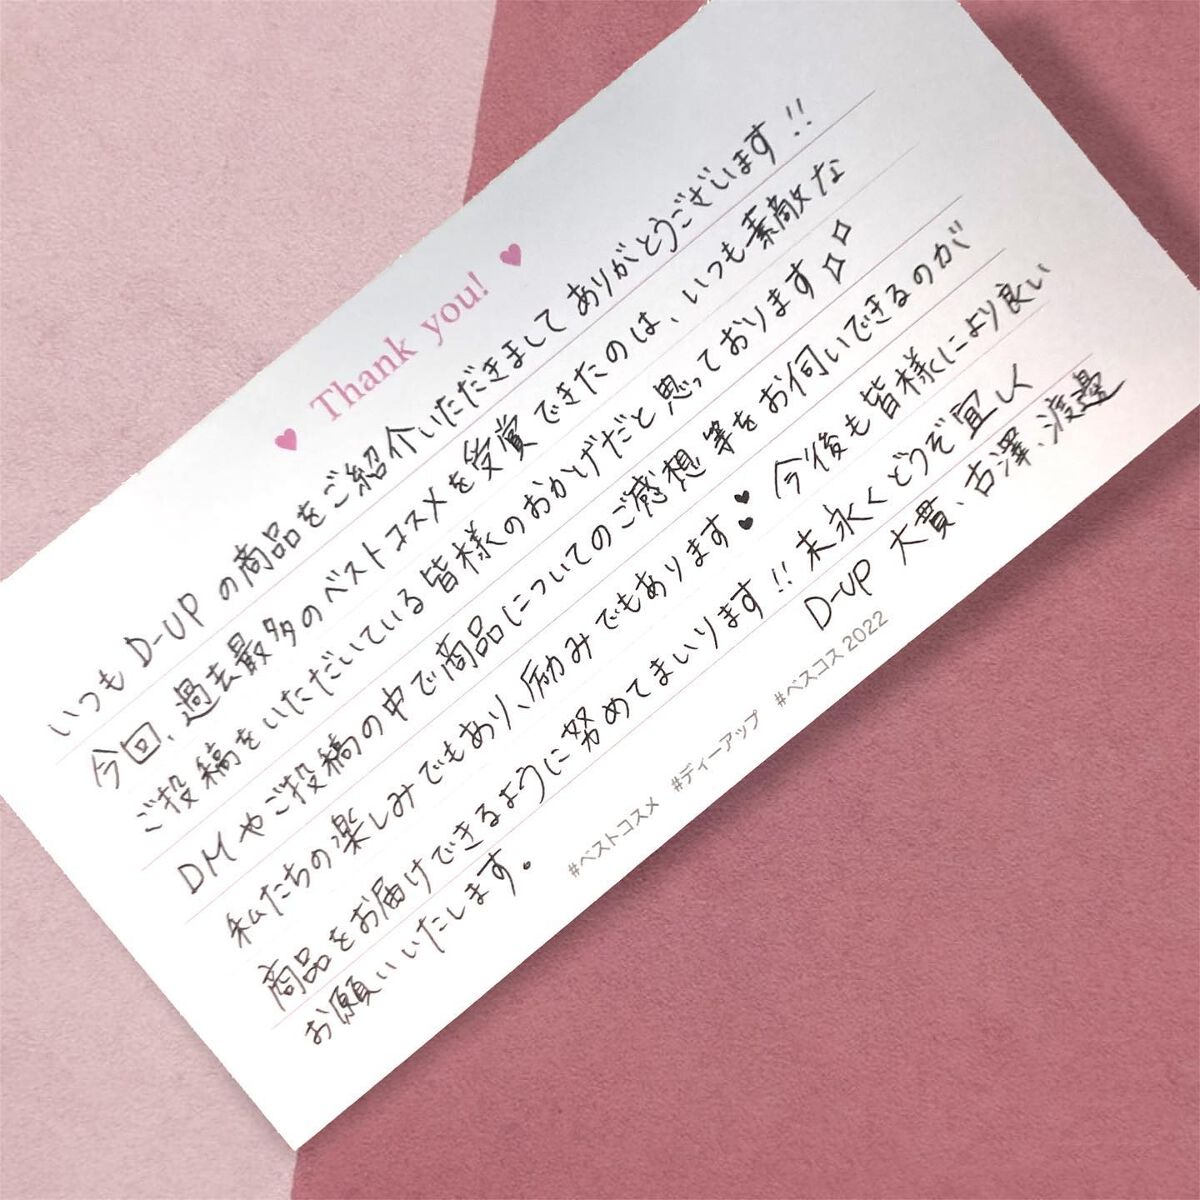 ♥ Thank you! ♥
いつも D-UP の商品をご紹介いただきまして ありがとうございます!!
今回、過去最多のベストコスメを受賞できたのは、いつも素敵な
ご投稿をいただいている皆様のおかげだと思っております
DMやご投稿の中で商品についてのご感想等をお伺いできるのが
私たちの楽しみでもあり、励みでもあります♥♥ 今後も皆様により良い
商品をお届けできるように努めてまいります!! 末永くどうぞ宜しく
お願いいたします。
D-UP 大貫、古澤、渡邊
#ベストコスメ #ディーアップ #ベスコス2022